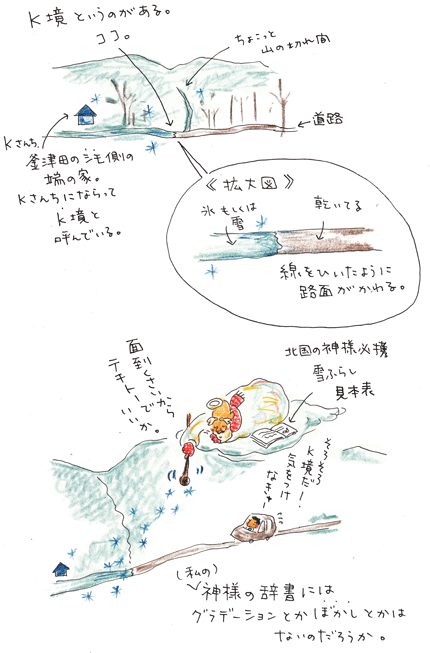 K境というのがある。
ココ。
ちょこっと
山の切れ間
道路
Kさんち。
釜津田の下側の
端の家。
Kさんちにならって
K境と
呼んでいる。
《拡大図》
氷もしくは
雪
乾いてる
線をひいたように
路面がかわる。
面到くさいから
テキトーでいいか。
北国の神様必携
雪ふらし
見本表
そろそろ
K境だ!
気をつけ
なきゃー
(私の)
神様の辞書には
グラデーションとかぼかしとかは
ないのだろうか。